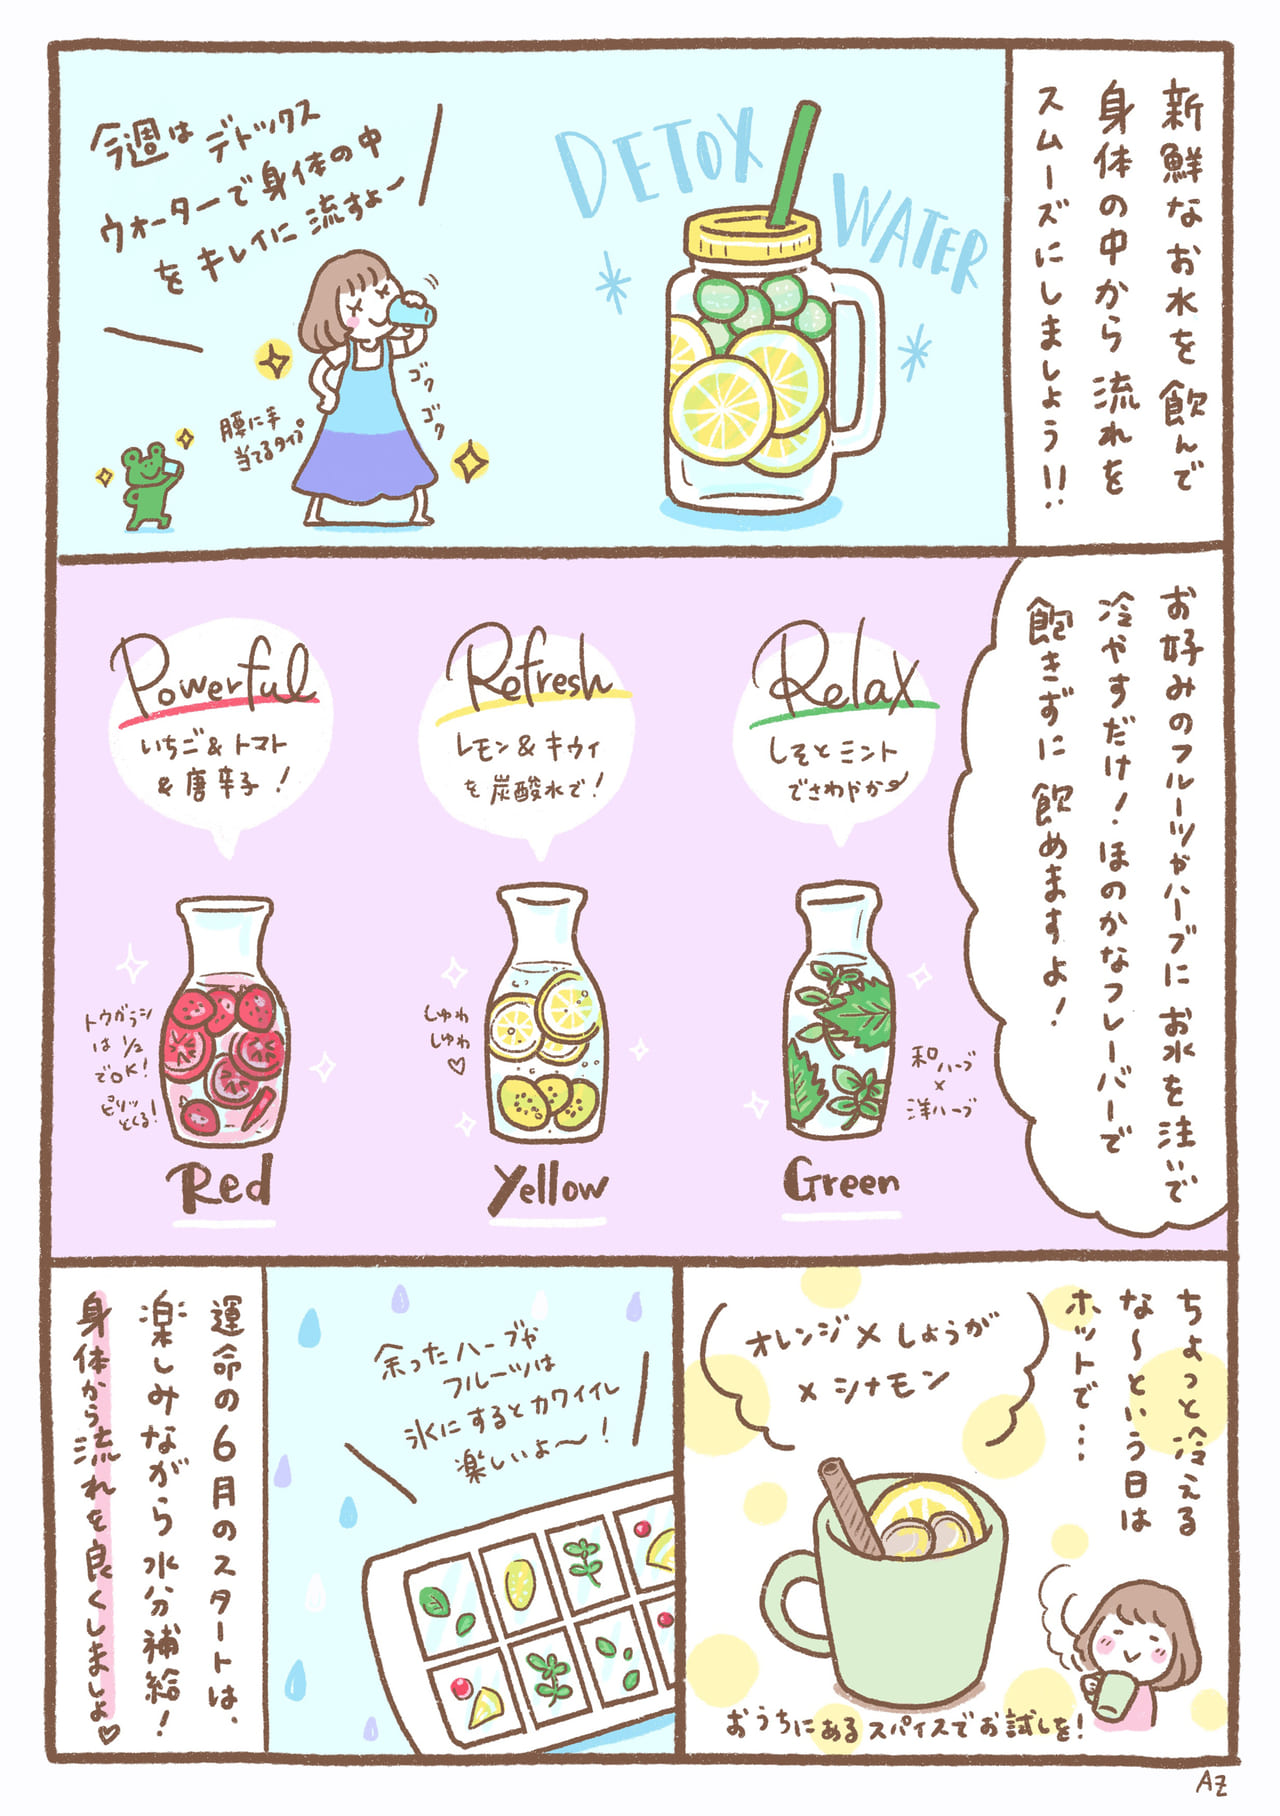 新鮮なお水を飲んで
身体の中から流れを
スムーズにしましょう!!
DETOX
WATER
今週はデトックス
ウォーターで身体の中
をキレイに流すよ〜
ゴクゴク
腰に手
当てるタイプ
お好みのフルーツやハーブにお水を注いで
冷やすだけ!ほのかなフレーバーで
飽きずに飲めますよ!
Relax
しそとミント
でさわやか
和ハーブ
×
洋ハーブ
Green
Refresh
レモン&キウイ
を炭酸水で!
しゅわ
しゅわ♡
Yellow
Powerful
いちご&トマト
&唐辛子!
トウガラシ
は1/2
でOK!
ピリッ
とくる!
Red
ちょっと冷える
な〜という日は
ホットで…
オレンジ×しょうが
×シナモン
おうちにあるスパイスでお試しを!
余ったハーブや
フルーツは
氷にするとカワイイし
楽しいよ〜!
運命の6月のスタートは、
楽しみながら水分補給!
身体から流れを良くしましょ♡
AZ